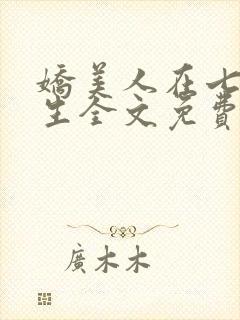 嬌美人在七
生全文免費
廣木木